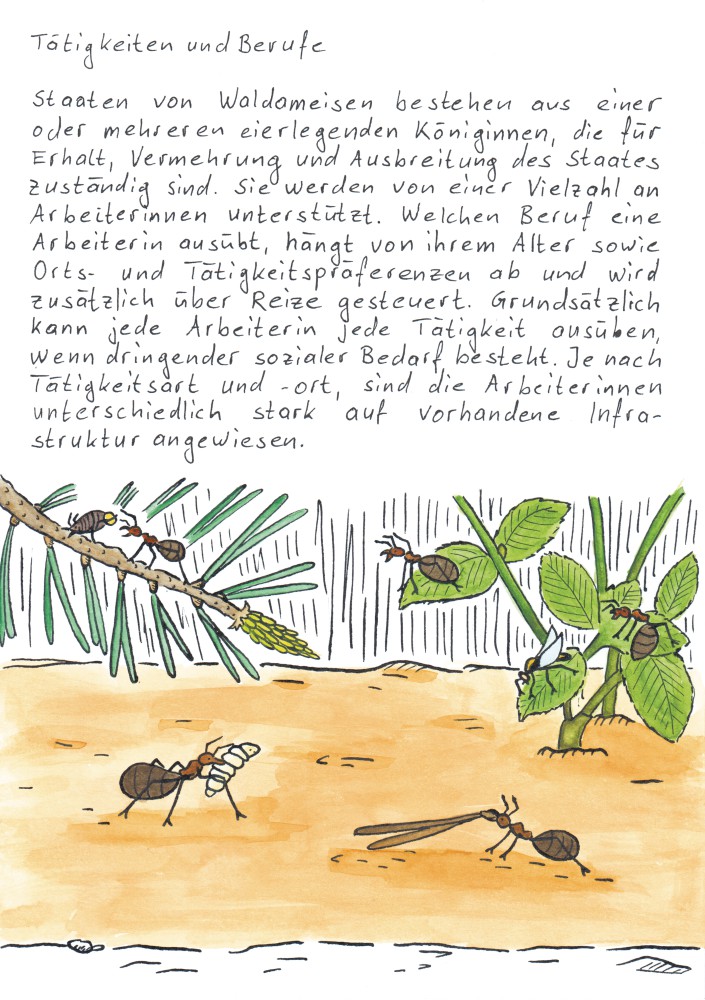 Tätigkeiten und Berufe
Staaten von Waldameisen bestehen aus einer
oder mehreren eierlegenden Königinnen, die für
Erhalt, Vermehrung und Ausbreitung des Staates
zuständig sind. Sie werden von einer Vielzahl an
Arbeiterinnen unterstützt. Welchen Beruf eine
Arbeiterin ausübt, hängt von ihrem Alter sowie
Orts- und Tätigkeitspräferenzen ab und wird
zusätzlich über Reize gesteuert. Grundsätzlich
kann jede Arbeiterin jede Tätigkeit ausüben,
wenn dringender sozialer Bedarf besteht. Je nach
Tätigkeitsart und -ort, sind die Arbeiterinnen
unterschiedlich stark auf vorhandene Infra-
struktur angewiesen.